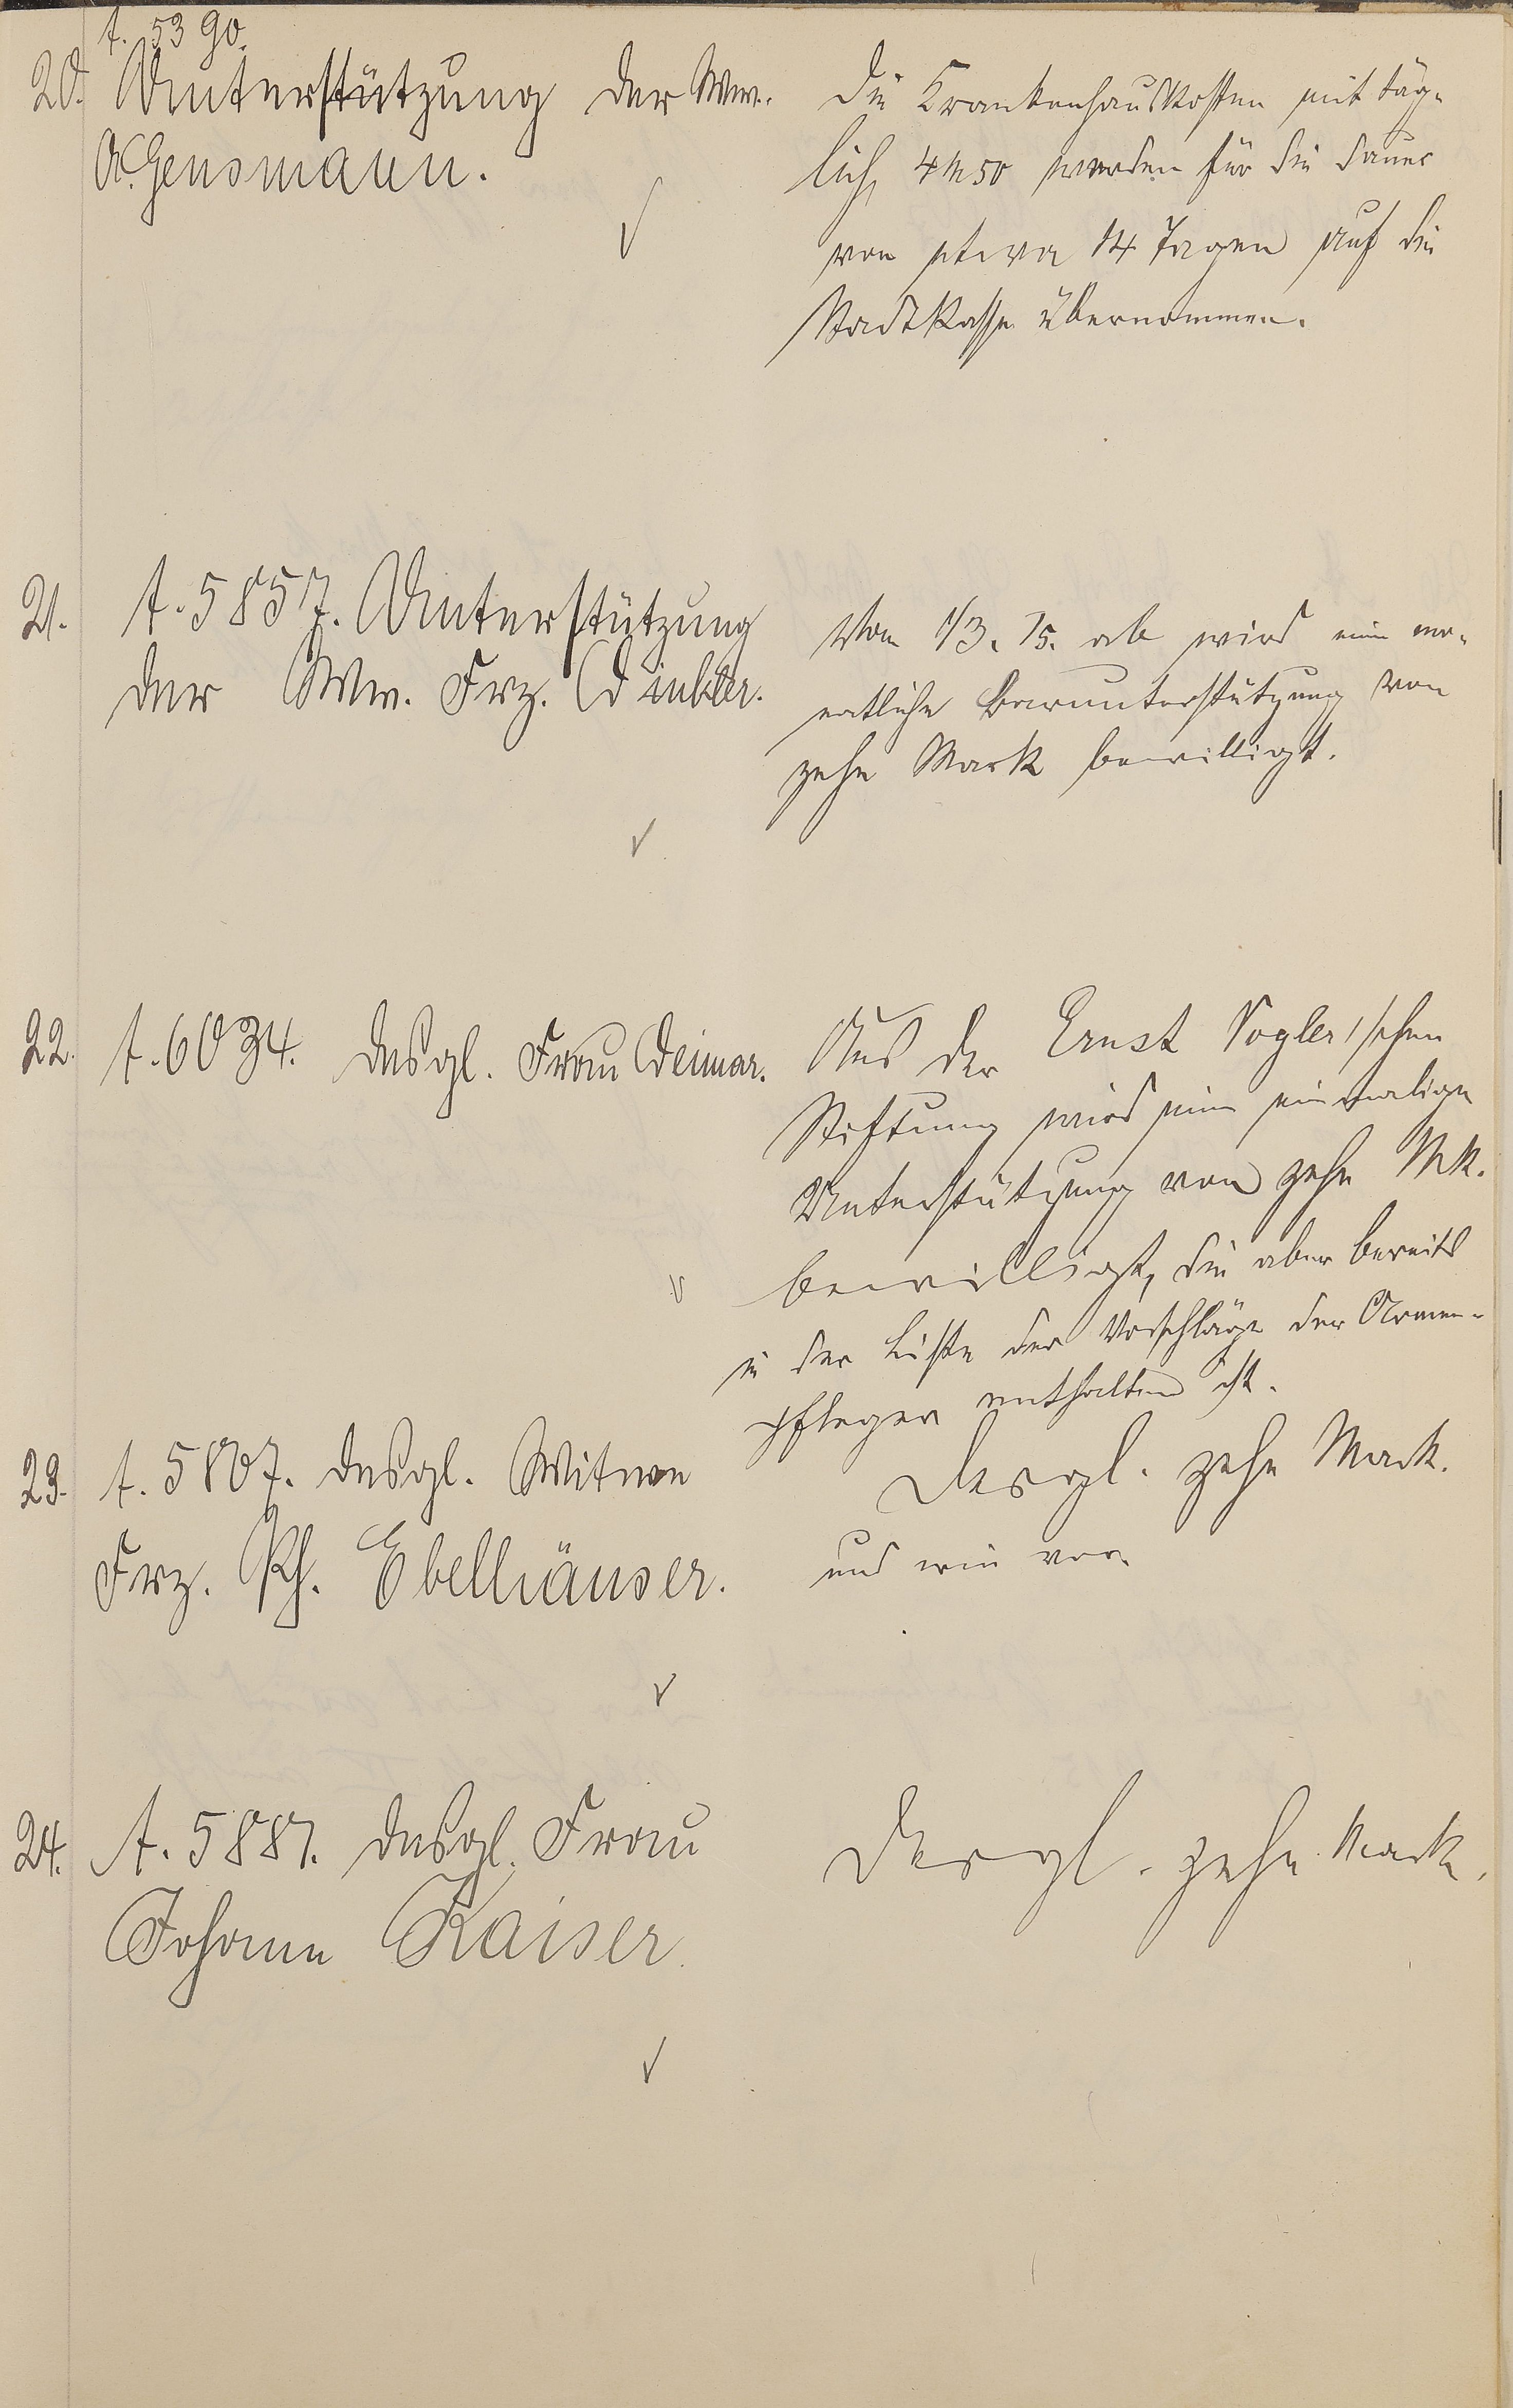 t. 5390.
20. Unterstützung der Ww.
A. Gensmann.
Die Krankenhauskosten mit täg-
lich 4 M 50 werden für die Dauer
von etwa 14 Tagen auf die
Stadtkasse übernommen.
21. t. 5857. Unterstützung
der Ww. Frz. Dinkler.
Vom 1/3. 15. ab wird eine mo-
natliche Barunterstützung von
zehn Mark bewilligt.
22. t. 6034. Desgl. Frau Deimar.
Aus der Ernst Vogler'schen
Stiftung wird eine einmalige
Unterstützung von zehn Mk.
bewilligt, die aber bereits
in der Liste der Vorschläge der Armen-
pfleger enthalten ist.
23. t. 5807. Desgl. Witwe
Frz. Ph. Ebelhäuser.
Desgl. zehn Mark.
und wie vor.
24. t. 5887. Desgl. Frau
Johann Kaiser.
Desgl. zehn Mark.